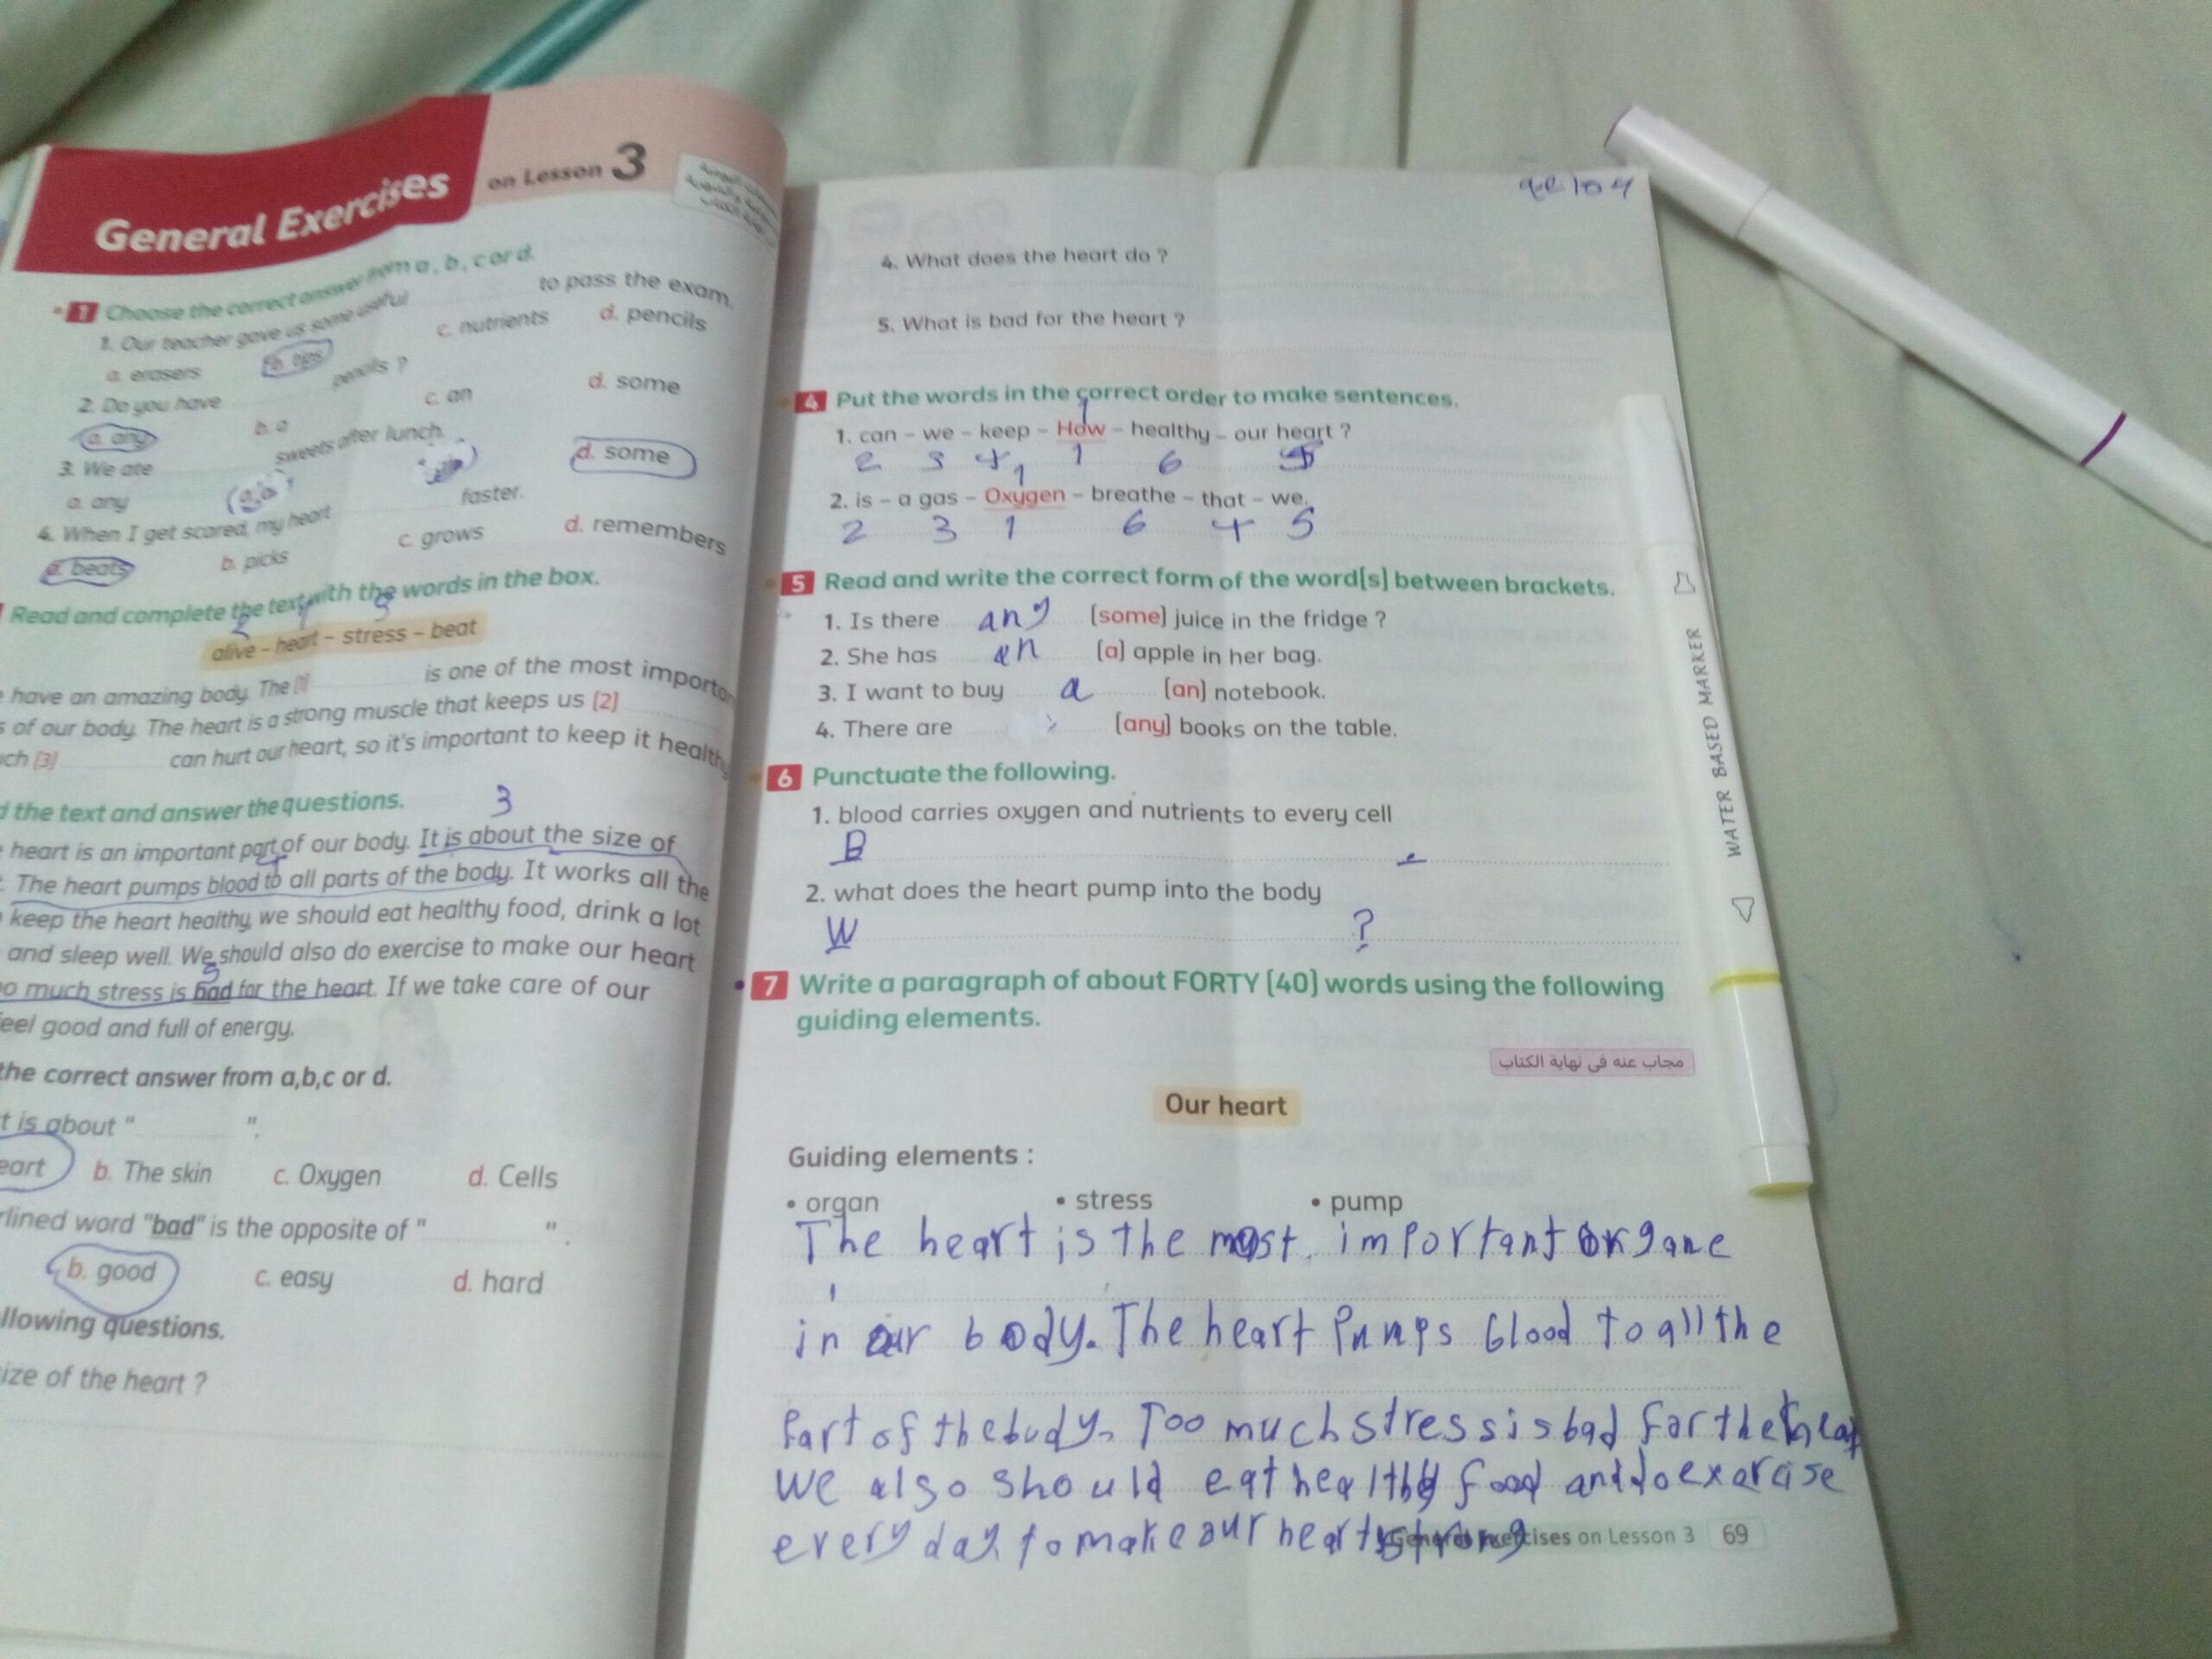 General Exercises on Lesson 3
1 Choose the correct answer from a, b, c or d.
1. Our teacher gave us some useful to pass the exam.
a. erasers b. tips c. nutrients d. pencils
2. Do you have pencils ?
a. any b. a c. an d. some
3. We ate sweets after lunch.
a. any d. some
4. When I get scared, my heart faster.
a. beats b. picks c. grows d. remembers
Read and complete the text with the words in the box.
2 1 3
alive – heart – stress – beat
have an amazing body. The [1] is one of the most importan
s of our body. The heart is a strong muscle that keeps us [2]
ch [3] can hurt our heart, so it's important to keep it health
d the text and answer the questions.
3
heart is an important part of our body. It is about the size of
4
. The heart pumps blood to all parts of the body. It works all the
keep the heart healthy, we should eat healthy food, drink a lot
and sleep well. We should also do exercise to make our heart
5
o much stress is bad for the heart. If we take care of our
feel good and full of energy.
the correct answer from a,b,c or d.
t is about " ".
eart b. The skin c. Oxygen d. Cells
rlined word "bad" is the opposite of " ".
b. good c. easy d. hard
llowing questions.
ize of the heart ?
4. What does the heart do ?
5. What is bad for the heart ?
4 Put the words in the correct order to make sentences.
1
1. can – we – keep – How – healthy – our heart ?
2 3 4 1 6 5
1
2. is – a gas – Oxygen – breathe – that – we.
2 3 1 6 4 5
5 Read and write the correct form of the word[s] between brackets.
1. Is there any [some] juice in the fridge ?
2. She has an [a] apple in her bag.
3. I want to buy a [an] notebook.
4. There are [any] books on the table.
6 Punctuate the following.
1. blood carries oxygen and nutrients to every cell
B .
2. what does the heart pump into the body
W ?
7 Write a paragraph of about FORTY [40] words using the following
guiding elements.
مجاب عنه فى نهاية الكتاب
Our heart
Guiding elements :
• organ • stress • pump
The heart is the most important organe
in our body. The heart Pumps blood to all the
Part of the body. Too much stress is bad for the hear
We also should eat healthy food and do exercise
every day to make our heart strong
General Exercises on Lesson 3 69
WATER BASED MARKER